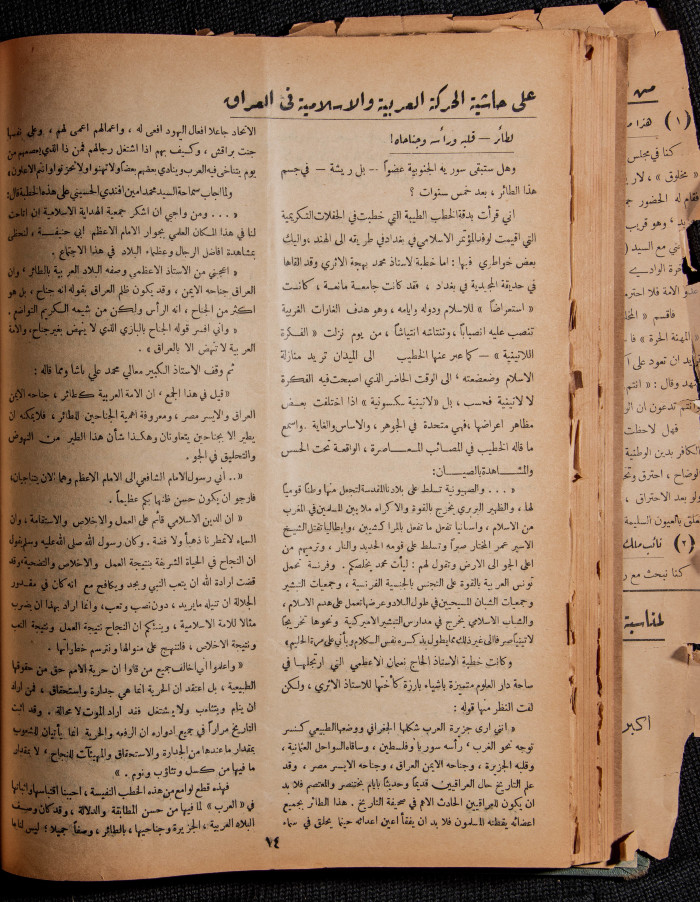 على حاشية الحركة العربية والاسلامية في العراق
لطائر — قلبه ورأسه وجناحاه!
وهل ستبقى سوريه الجنوبية عضواً — بل ريشة — في جسم
هذا الطائر، بعد خمس سنوات ؟
اني قرأت بدقة الخطب الطيبة التي خطبت في الحفلات التكريمية
التي اقيمت لوفد المؤتمر الاسلامي في بغداد في طريقه الى الهند، واليك
بعض خواطري فيها : اما خطبة لاستاذ محمد بهجة الاثري وقد القاها
في حديقة المجيدية في بغداد ، فقد كانت جامعة مانعة ، كانت
« استعراضاً » للاسلام ودوله وايامه ، وهو هدف الغارات الغربية
تنصب عليه انصباباً، وتنتاشه انتياشاً ، من يوم نزلت « الفكرة
اللاتينية » — كما عبر عنها الخطيب الى الميدان تريد منازلة
الاسلام وضعضعته ، الى الوقت الحاضر الذي اصبحت فيه الفكرة
لا لاتينية فحسب ، بل «لاتينية سكسونية » اذا اختلفت بعض
مظاهر اعراضها ، فهي متحدة في الجوهر ، والاساس والغاية . واسمع
ما قاله الخطيب في المصائب المعاصرة ، الواقعة تحت الحس
والمشاهدة بالعيان :
« . . . والصهيونية تسلط على بلادنا المقدسة لتجعل منها وطناً قومياً
لها ، والظهير البربري يخرج بالقوة والاكراه ملايين المسلمين في المغرب
من الاسلام ، واسبانيا تفعل ما تفعل بالمراكشيين ، وايطاليا تقتل الشيخ
الاسير عمر المختار صبراً وتسلط على قومه الحديد والنار ، وترميهم من
اعلى الجو الى الارض وتقول لهم : ليأت محمد يخلصكم . وفرنسة تحمل
تونس العربية بالقوة على التجنس بالجنسية الفرنسية ، وجمعيات التبشير
وجمعيات الشبان المسيحيين في طول البلاد وعرضها تعمل على هدم الاسلام ،
والشباب الاسلامي يخرج في مدارس التبشير الاميركية ونحوها تخريجاً
لاتينياً صرفاً الى غير ذلك مما يطول بذكره نفس الكلام ويأتي على مرة الحليم»
وكانت خطبة الاستاذ الحاج نعمان الاعظمي التي ارتجلها في
ساحة دار العلوم متميزة باشياء بارزة كأختها للاستاذ الاثري ، ولكن
لفت النظر منها قوله :
« انني ارى جزيرة العرب شكلها الجغرافي ووضعها الطبيعي كنسر
توجه نحو الغرب ، رأسه سوريا وفلسطين ، وساقاه السواحل العمانية ،
وقلبه الجزيرة ، وجناحه الايمن العراق ، وجناحه الايسر مصر ، وقد
علم التاريخ حال العراقيين قديماً وحديثاً بايام بختنصر والمعتصم فلا بد
ان يكون للعراقيين الحادث الاهم في صحيفة التاريخ . هذا الطائر بجميع
اعضائه يقظته المسلمون فلا بد ان يفقأ اعين اعدائه حينما يحلق في سماء
الاتحاد جاعلا افعال اليهود افعى له ، واعمالهم اعمى لهم ، وعلى نفسها
جنت براقش ، وكيف بهم اذا اشتغل رجالهم فمن ذا الذي يعصمهم من
يوم يتناخى فيه العرب وينادي بعضهم بعضاً ولا تهنوا ولا تحزنوا وانتم الاعلون،
ولما اجاب سماحة السيد محمد امين افندي الحسيني على هذه الخطبة قال :
« . . . ومن واجبي ان اشكر جمعية الهداية الاسلامية ان اتاحت
لنا في هذا المكان العلمي بجوار الامام الاعظم ابي حنيفة ، لنحظى
بمشاهدة افاضل الرجال وعظماء البلاد في هذا الاجتماع .
« اعجبني من الاستاذ الاعظمي وصفه البلاد العربية بالطائر ، وان
العراق جناحه الايمن ، وقد يكون ظلم العراق بقوله انه جناح ، بل هو
اكثر من الجناح ، انه الرأس ولكن من شيمه الكريم التواضع .
« واني افسر قوله الجناح بالبازي الذي لا ينهض بغير جناح، والامة
العربية لا تنهض الا بالعراق » .
ثم وقف الاستاذ الكبير معالي محمد علي باشا ومما قاله :
« قيل في هذا الجمع ، ان الامة العربية كطائر ، جناحه الايمن
العراق والايسر مصر ، ومعروفة اهمية الجناحين للطائر ، فلا يمكنه ان
يطير الا بجناحين يتعاونان وهكذا شأن هذا الطير من النهوض
والتحليق في الجو .
« . . اني رسول الامام الشافعي الى الامام الاعظم وهما الان يتناجيان،
فارجو ان يكون حسن ظنهما بكم عظيماً .
« ان الدين الاسلامي قائم على العمل والاخلاص والاستقامة ، وان
السماء لا تمطرنا ذهباً ولا فضة . وكان رسول الله صلى الله عليه وسلم يقول
ان النجاح في الحياة الشريفة بنتيجة العمل والاخلاص والتضحية ، وقد
قضت ارادة الله ان يتعب النبي ويجد ويكافح مع انه كان في مقدور
الجلالة ان تنيله ما يريد ، دون نصب وتعب، وانما اراد بهذا ان يضرب
مثالا للامة الاسلامية ، وينبئكم ان النجاح نتيجة العمل ونتيجة التعب
ونتيجة الاخلاص ، فلتنهج على منوالها وتترسم خطواتها .
« واعلموا اني اخالف جميع من قالوا ان حرية الامم حق من حقوقها
الطبيعية ، بل اعتقد ان الحرية انما هي جدارة واستحقاق ، فمن اراد
ان ينام ويتثاءب ولا يشتغل فقد اراد الموت لا محالة . وقد اثبت
التاريخ مراراً في جميع ادواره ان الرفعة والحرية انما يأتيان للشعوب
بمقدار ما عندها من الجدارة والاستحقاق والمهيئات للنجاح ، لا بمقدار
ما فيها من كسل وتثاؤب ونوم . »
فهذه قطع لوامع من هذه الخطب النفيسة ، احببنا اقتباسها واثباتها
في « العرب » لما فيها من حسن المطابقة والدلالة ، وقد كان وصف
البلاد العربية ، الجزيرة وجناحيها ، بالطائر ، وصفاً جميلا ؛ ليس لنا ما
١٤
من
(١) هذا
كنا في مجلس
« مخلوق » ،
فقام له الحضور
(٢)
كنا نبحث مع
لمناسبة
اكبر